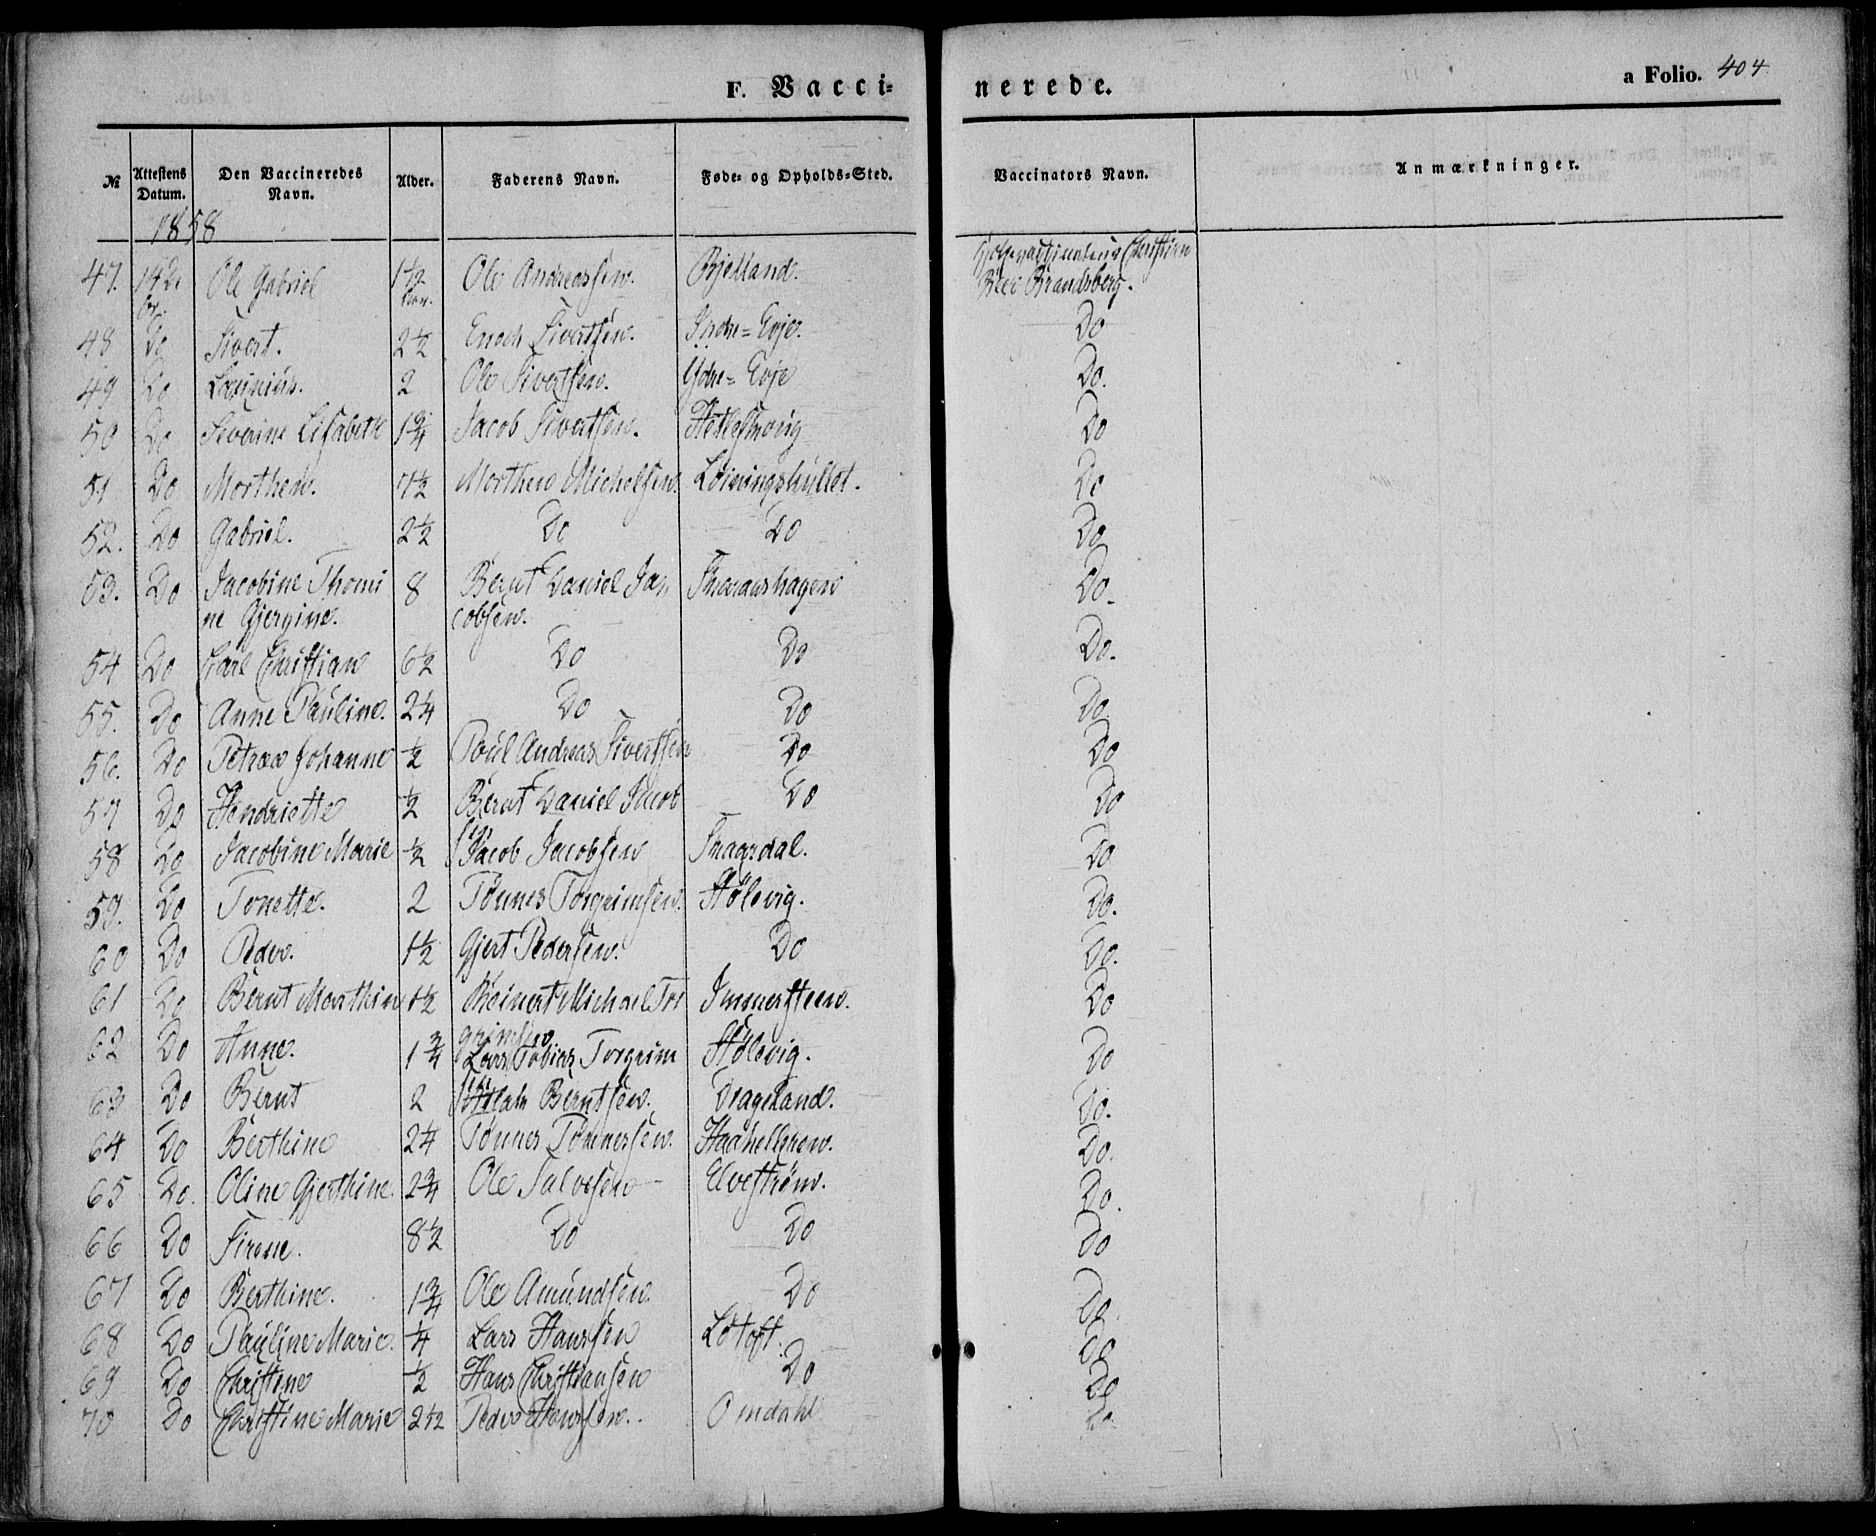 F. Vacci-nerede.
a Folio. 404
№ Attestens Datum. Den Vaccineredes Navn. Alder. Faderens Navn. Føde- og Opholds-Sted. Vaccinators Navn. Anmærkninger.
1858
47. 14 Ole Gabriel 1 1/2 Ole Andreassen. Bjelland. Christian
Brandsberg.
48 Do Sivert. 2 1/2 Enoch Sivertsen. Indre=Evje. Do
49 Do 2 Ole Sivertsen. Ydre=Evje Do.
50 Do Severine Lisabeth 1 3/4 Jacob Sivertsen. Do
51 Do Morthen. 4 1/2 Morthen Michelsen. Do
52. Do Gabriel. 2 1/2 Do Do Do
53. Do Jacobine Thomi 8 Bernt Daniel Ja Do.
ne Gjergine. cobsen.
54 Do Karl Christian 6 1/2 Do Do Do.
55. Do Anne Pauline. 2 1/4 Do Do Do
56. Do Petrea Johanne 1/2 Poul Andreas Sivertsen Do Do
57 Do Hendriette 1/2 Bernt Daniel Jacob Do Do
sen
58 Do Jacobine Marie 1/2 Jacob Jacobsen Do
59. Do Tonette. 2 Tønnes Torgrimsen. Hølevig. Do.
60 Do Peder. 1 1/2 Gjert Pedersen. Do Do.
61 Do Bernt Morthin 1 1/2 Reinert Michael Tor Immersteen. Do
grimsen
62 Do Anne. 1 3/4 Lars Tobias Torgrim Hølevig. Do
sen
63 Do Bernt 2 Berntsen. Drageland. Do.
64 Do Berthine 2 1/4 Tønnes Tønnessen. Do.
65 Do. Oline Gjerthine. 2 3/4 Ole Salvesen Elvestrøm. Do.
66 Do Sirene. 8 1/2 Do Do Do
67 Do Berthine. 1 3/4 Ole Amundsen. Do Do.
68 Do Pauline Marie. 1/4 Lars Hanssen Løtoft. Do
69 Do Christine 1/2 Hans Christiansen Do Do
70 Do Christine Marie 2 1/2 Peder Hanssen. Omdahl Do.